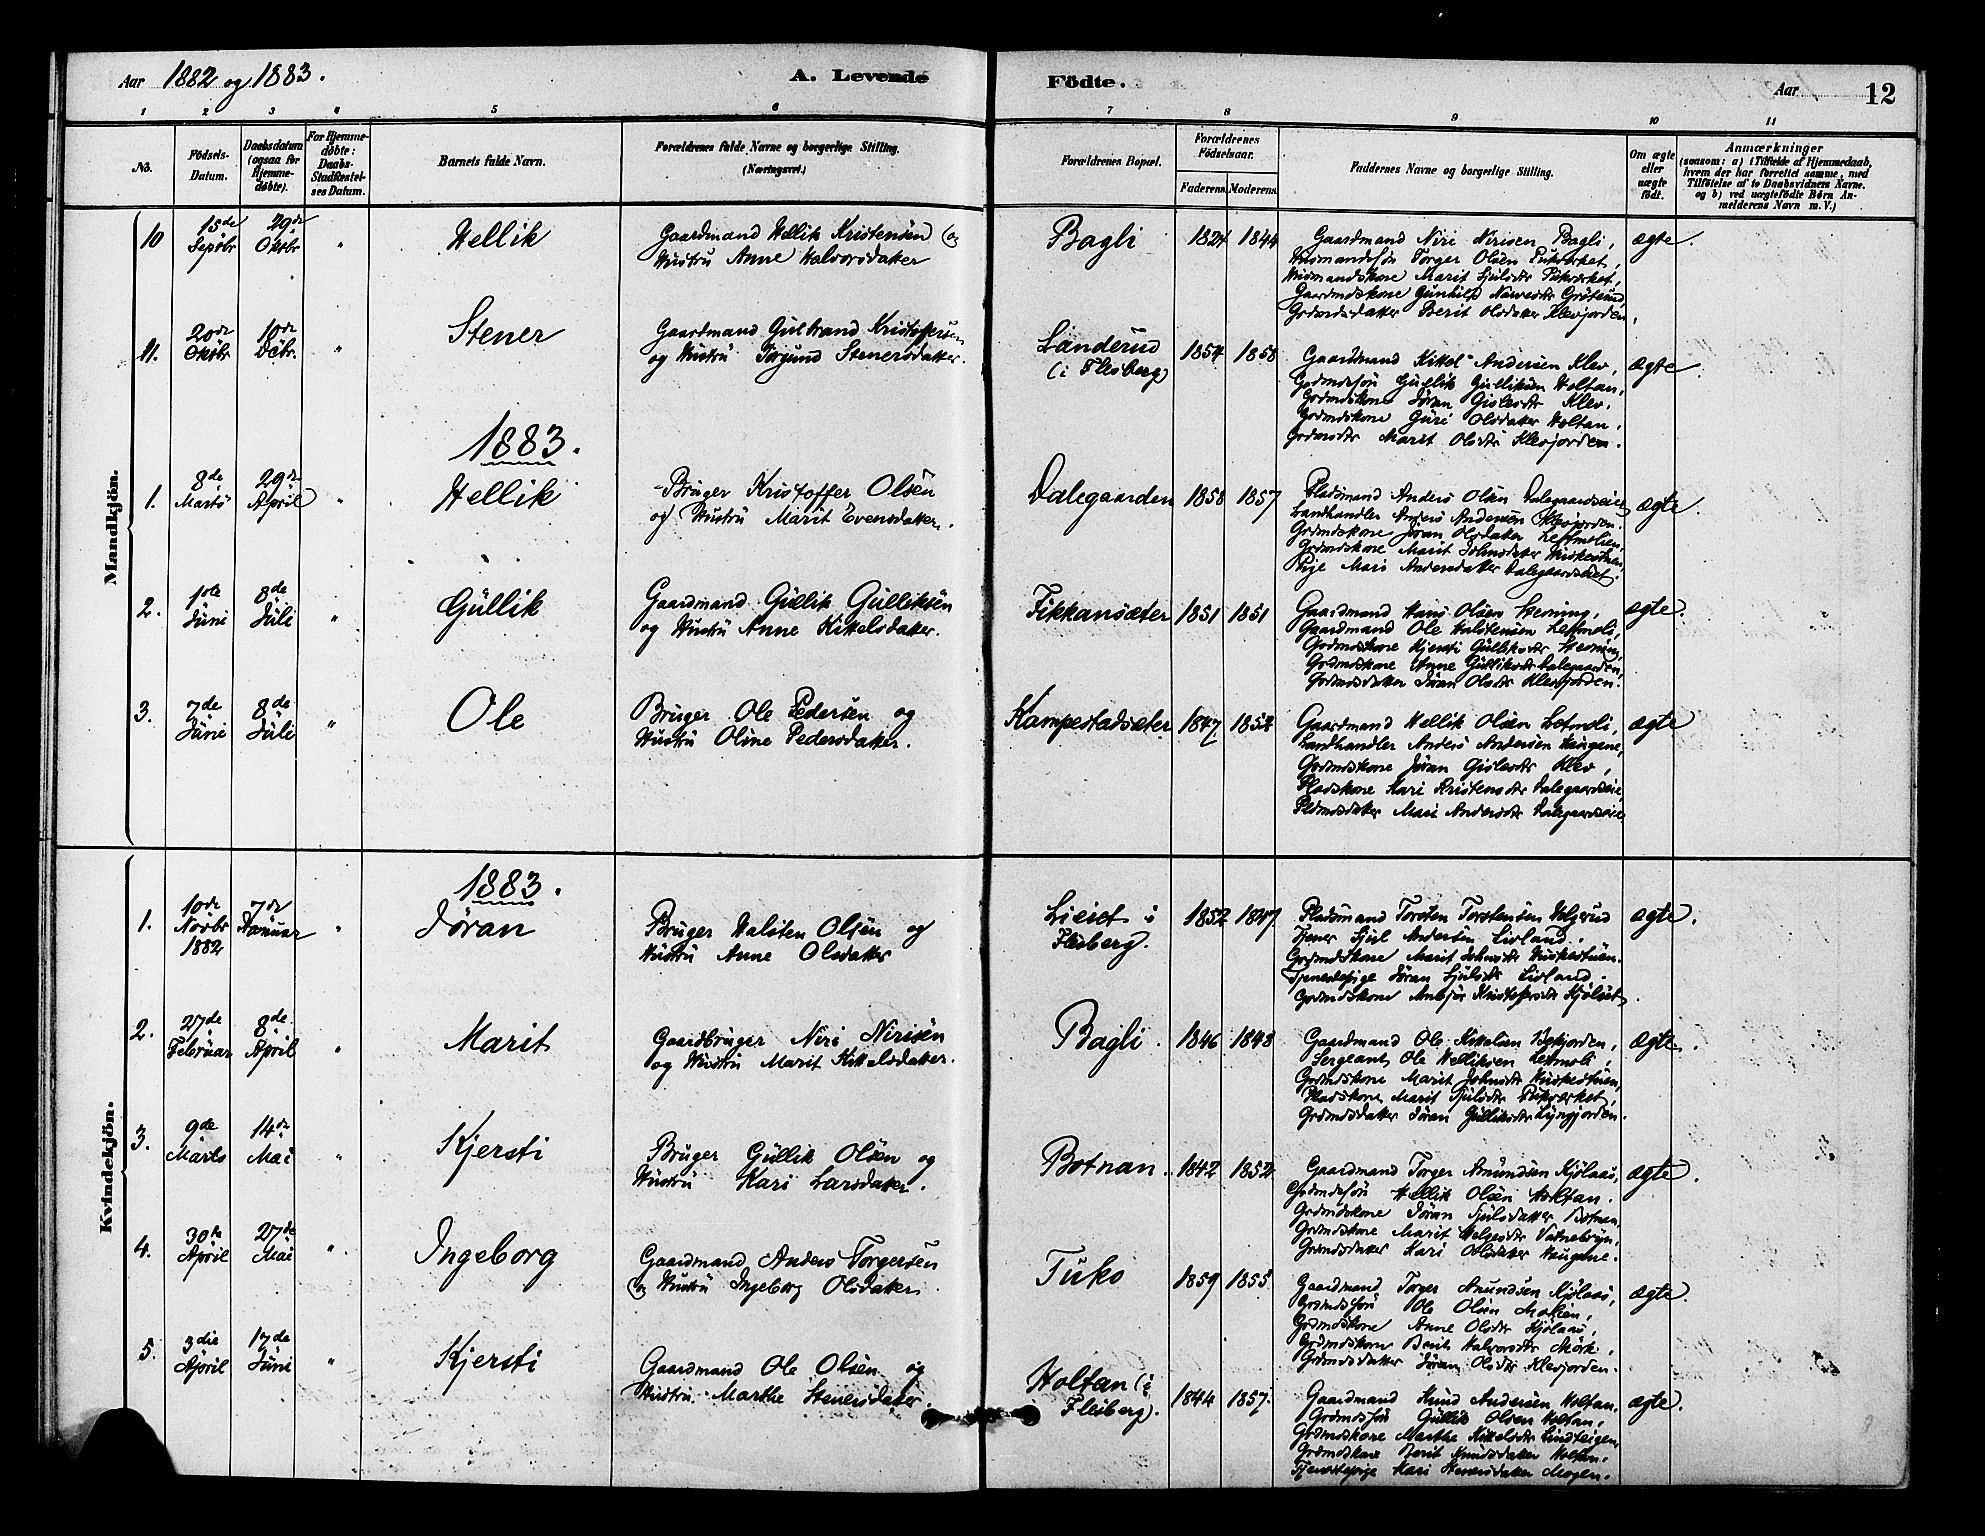 Aar 1882 og 1883.
A. Levende Födte.
Aar 12
1 2 3 4 5 6 7 8 9 10 11
No.
Födsels-Datum.
Daabsdatum (ogsaa for Hjemmedøbte).
For Hjemmedøbte: Daabs-Stadfæstelses Datum.
Barnets fulde Navn.
Forældrenes fulde Navne og borgerlige Stilling. (Næringsvei.)
Forældrenes Bopæl.
Forældrenes Födselsaar.
Faderens. Moderens.
Faddernes Navne og borgerlige Stilling.
Om ægte eller uægte födt.
Anmærkninger
(saasom: a) i Tilfælde af Hjemmedaab, hvem der har forrettet samme, med Tilföielse af to Daabsvidners Navne. og b) ved uægtefödte Börn Anmelderens Navn m. V.)
Mandkjön.
10 15de Sepbr 29de Oktbr " Hellik
Gaardmand Hellik Kristensen og
Hustru Anne Halvorsdatter
Bagli 1824 1844
Gaardmand Niri Nirisen Bagli,
Husmandssøn Torger Olsen
Husmandskone Marit Sjulsdtr
Gaardmdskone Gunhild
Grdmdsdatter Berit Olsdatter Klevjorden,
ægte.
11. 20de Oktbr 10de Debr. " Stener
Gaardmand Gulbrand Kristoffersen
og Hustru Jørgund Stenersdatter.
Landerud (i Flesberg) 1854 1858
Gaardmand Kittel Andersen Klev,
Grdmdssøn Gullik Gulliksen Holtan,
Grdmdskone Jøran Gislesdtr Klev.
Grdmdskone Guri Olsdatter Holtan.
Grdmdsdtr Marit Olsdtr Klevjorden.
ægte.
1883.
1. 8de Marts 29de April " Hellik
Bruger Kristoffer Olsen
og Hustru Marit Evensdatter.
Dalegaarden 1858 1857
Pladsmand Anders Olsen Dalegaardseiet
Landhandler Anders Andersen Klevjorden.
Grdmdskone Jøran Olsdatter Lettmolien,
Grdmdskone Marit Johnsdatter
Pige Mari Andersdatter Dalegaardseiet.
ægte.
2. 1ste Juni 8de Juli " Gullik
Gaardmand Gullik Gulliksen
og Hustru Anne Kittelsdatter.
Fikkansæter 1851 1851
Gaardmand Hans Olsen
Gaardmand Ole Halstensen Lettmoli,
Grdmdskone Kjersti Gulliksdtr
Grdmdskone Anne Gulliksdtr Dalegaarden,
Grdmdsdatter Jøran Olsdtr Klevjorden.
ægte.
3. 7de Juni 8de Juli " Ole
Bruger Ole Pedersen og
Hustru Oline Pedersdatter.
Kampestadsæter 1847 1854
Gaardmand Hellik Olsen Letmoli,
Landhandler Anders Andersen Haugane,
Grdmdskone Jøran Gislesdtr Klev,
Pladskone Kari Kristensdtr Dalegaardseie
Pldmdsdatter Mari Andersdtr Dalegaardseie
ægte
Kvindekjön.
1883.
1. 10de Novbr 1882 7de Januar " Jøran
Bruger Halsten Olsen og
Hustru Anne Olsdatter
Lieiet i Flesberg. 1852 1847
Pladsmand Torsten Torstensen
Tjener Sjul Andersen Livland.
Grdmdskone Marit Johnsdtr
Tjenestepige Jøran Sjulsdtr Livland.
Grdmdskone Ambjør Kristoffersdtr
ægte.
2. 27de Februar 8de April " Marit
Gaardbruger Niri Nirisen
og Hustru Marit Kittelsdatter.
Bagli. 1846 1848
Gaardmand Ole Kittelsen
Sergeant Ole Helliksen Lettmoli,
Grdmdskone Marit Johnsdtr
Pladskone Marit Sjulsdtr
Grdmdsdatter Jøran Gulliksdtr Lyngjorden.
ægte.
3. 9de Marts 14de Mai " Kjersti
Bruger Gullik Olsen og
Hustru Kari Larsdatter.
Botnan. 1842 1852
Gaardmand Torger Amundsen Kjølaas,
Grdmdssøn Hellik Olsen Holtan.
Grdmdskone Jøran Sjulsdatter Botnan,
Grdmdskone Marit Helgesdtr Vatnebryn,
Grdmdsdatter Kari Olsdatter Haugane.
ægte.
4. 30te April 27de Mai ". Ingeborg
Gaardmand Anders Torgersen
og Hustru Ingeborg Olsdatter.
Tuko 1859 1855
Gaardmand Torger Amundsen Kjølaas,
Grdmdssøn Ole Olsen Moen,
Grdmdskone Anne Olsdtr Kjølaas,
Grdmdskone Berit Halvorsdtr Mørk,
Grdmdsdatter Jøran Olsdtr Klevjorden.
ægte.
5. 3die April 17de Juni " Kjersti
Gaardmand Ole Olsen og
Hustru Marthe Stenersdatter.
Holtan (i Flesberg). 1844 1857.
Gaardmand Knud Andersen Holtan,
Grdmdssøn Gullik Olsen Holtan,
Grdmdskone Marthe Kittelsdtr Lindteigen
Grdmdskone Berit Knudsdatter Holtan.
Tjenestepige Kari Stenersdatter Mogen.
ægte.